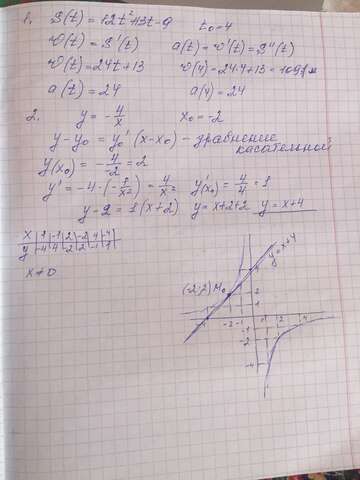 1. S(t) = 12t²+13t-9 t₀=4
v(t) = S'(t) a(t) = v'(t) = S''(t)
v(t) = 24t+13 v(4) = 24·4+13 = 109
a(t) = 24 a(4) = 24
2. y = -4/x x₀ = -2
y-y₀ = y₀'(x-x₀) - уравнение
касательной
y(x₀) = -4/-2 = 2
y' = -4·(-1/x²) = 4/x² y'(x₀) = 4/4 = 1
y-2 = 1(x+2) y = x+2+2 y = x+4
x | 1 | -1 | 2 | -2 | 4 | -4
y | -4 | 4 | -2 | 2 | -1 | 1
x≠0
y=x+4
(-2;2) M₀
2
1
-2 -1
2 4
-1
-2
-4